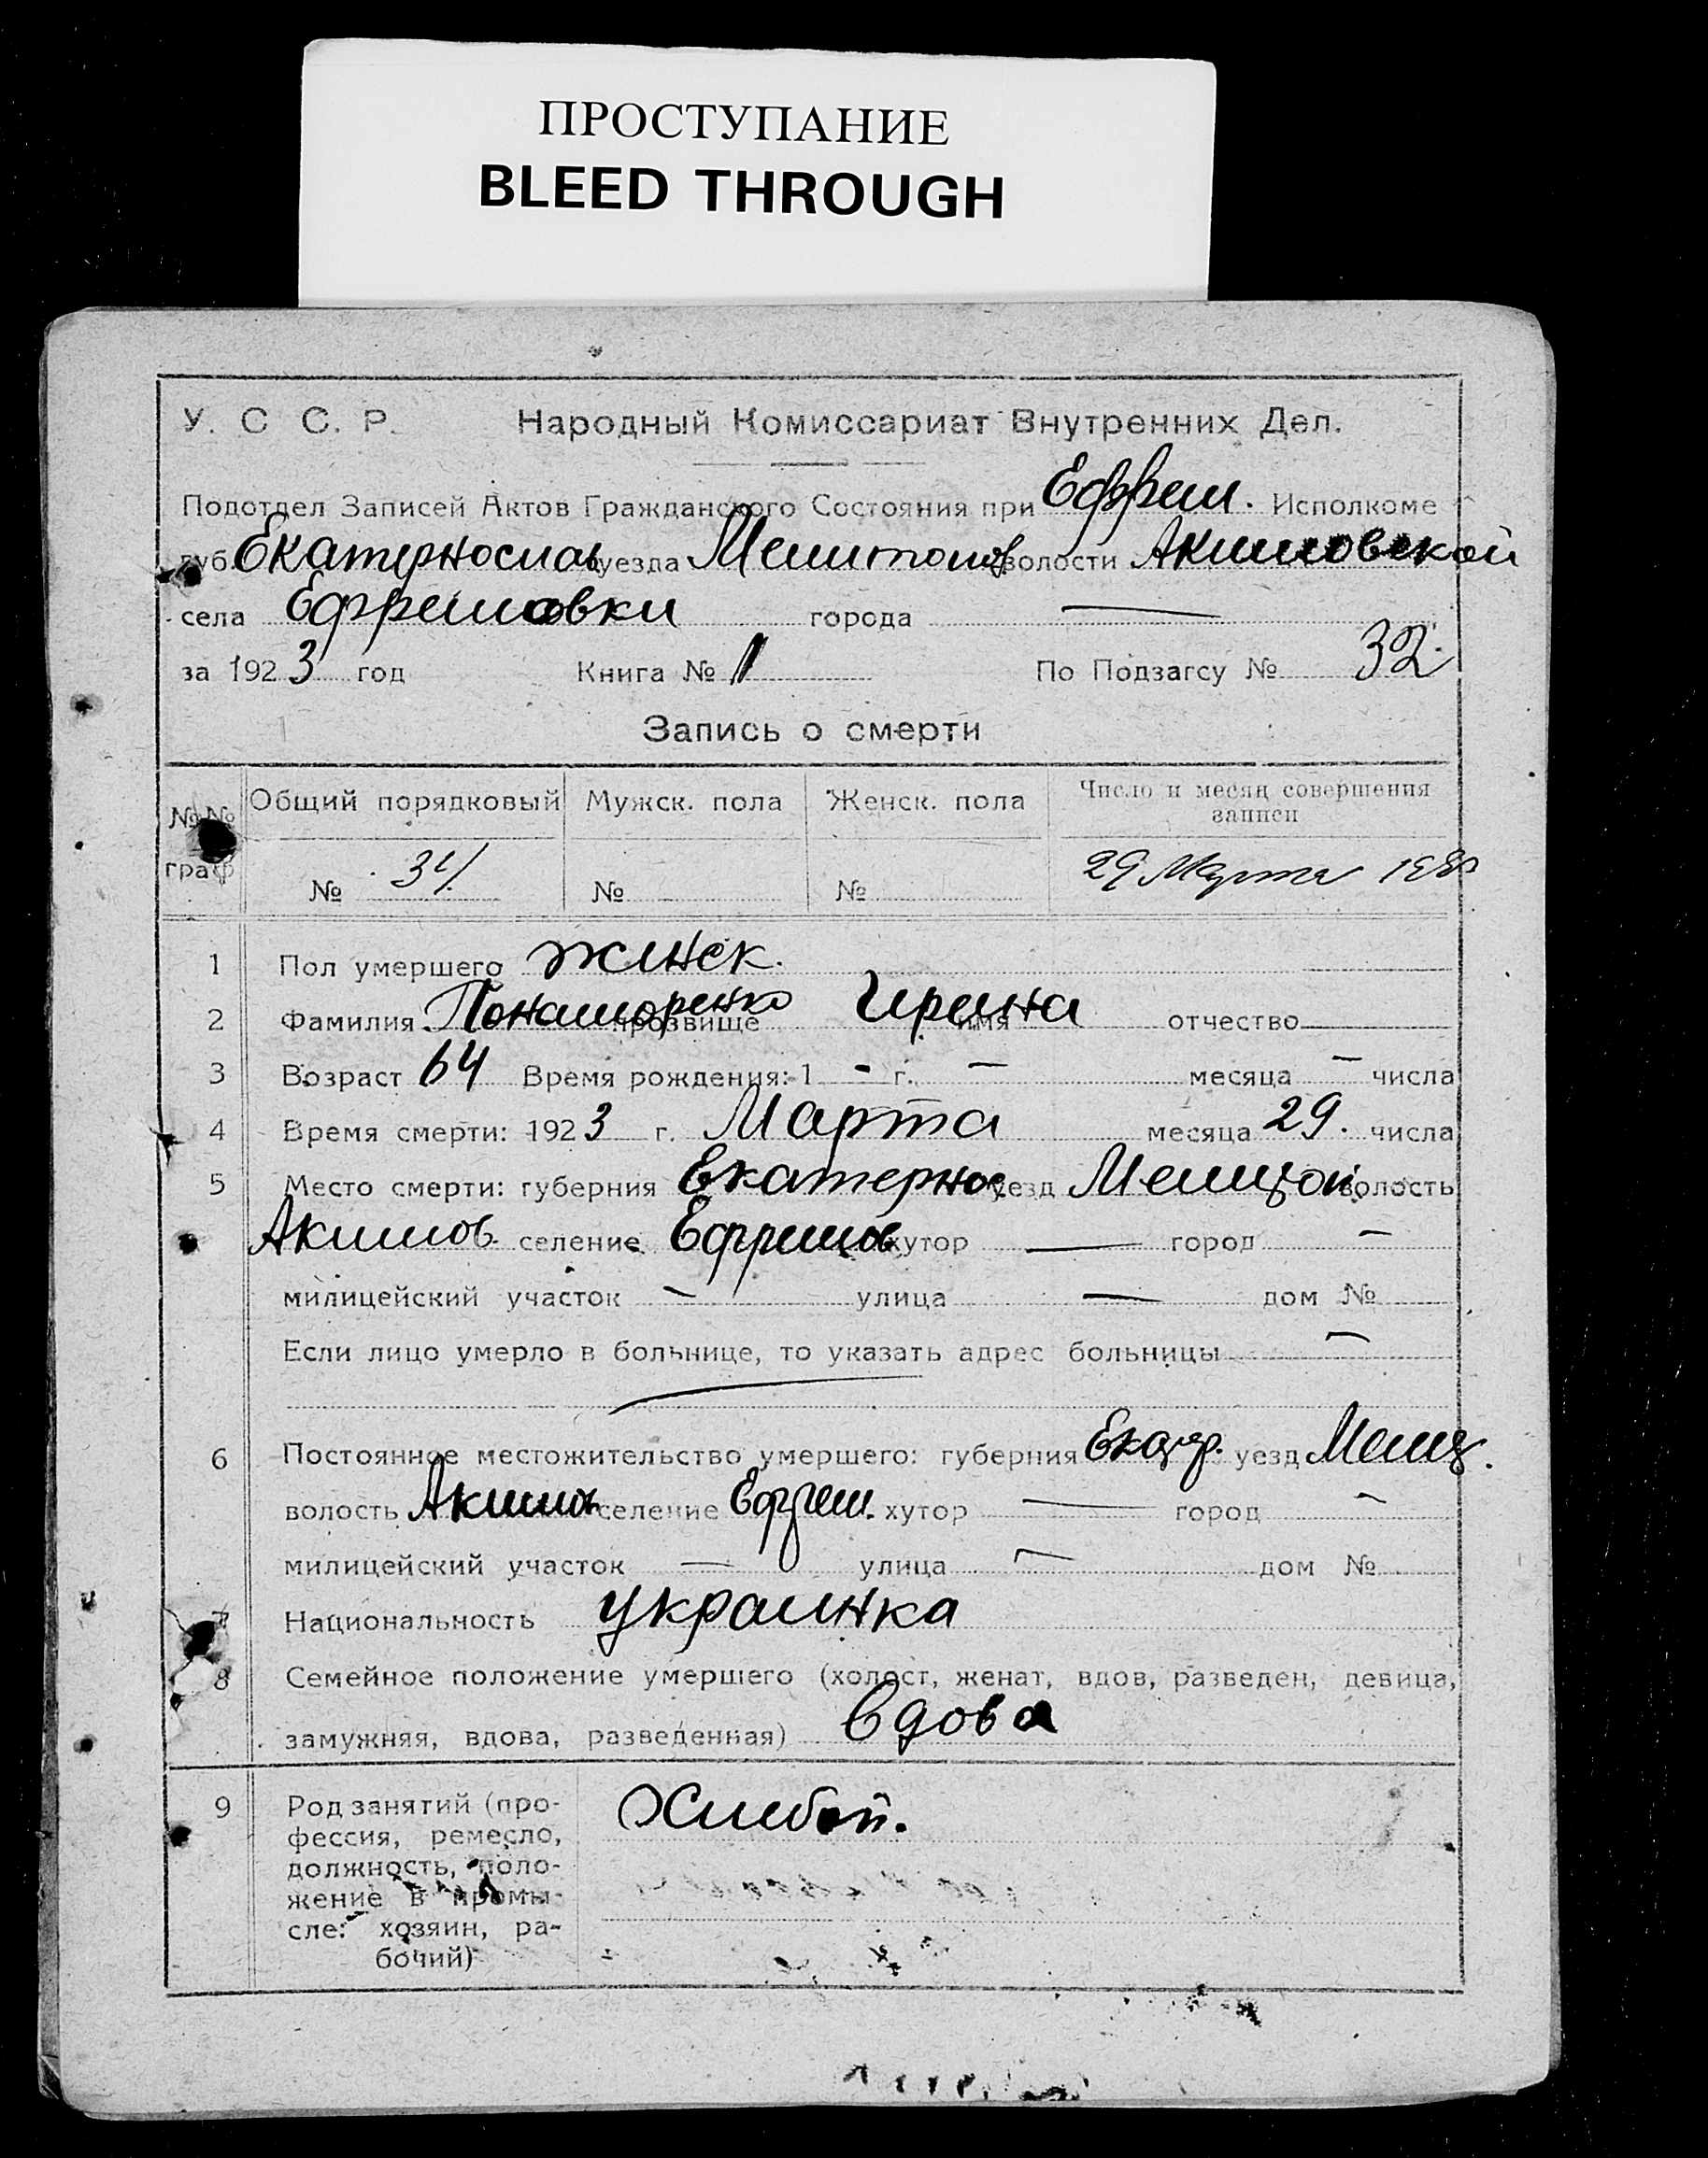 ПРОСТУПАНИЕ
BLEED THROUGH
У. С С. Р. Народный Комиссариат Внутренних Дел.
Подотдел Записей Актов Гражданского Состояния при Ефрем. Исполкоме
губ. Екатериносла уезда Мелитопол волости Акимовской
села Ефремовки города —
за 1923 год Книга № 1 По Подзагсу № 32.
Запись о смерти
№№ граф Общий порядковый Мужск. пола Женск. пола Число и месяц совершения записи
№ 34 № № 29 Марта
1 Пол умершего женск.
2 Фамилия Понаморенко прозвище имя Ирина отчество
3 Возраст 64 Время рождения: 1 - г. — месяца — числа
4 Время смерти: 1923 г. Марта месяца 29. числа
5 Место смерти: губерния Екатерино уезд волость
Акимов. селение Ефремов хутор — город —
милицейский участок — улица — дом №
Если лицо умерло в больнице, то указать адрес больницы —
6 Постоянное местожительство умершего: губерния Екатер. уезд Мелит.
волость Акимов селение Ефрем. хутор — город —
милицейский участок — улица — дом №
7 Национальность украинка
8 Семейное положение умершего (холост, женат, вдов, разведен, девица,
замужняя, вдова, разведенная) вдова
9 Род занятий (про- Хлебоп.
фессия, ремесло,
должность, поло-
жение в промы-
сле: хозяин, ра-
бочий)